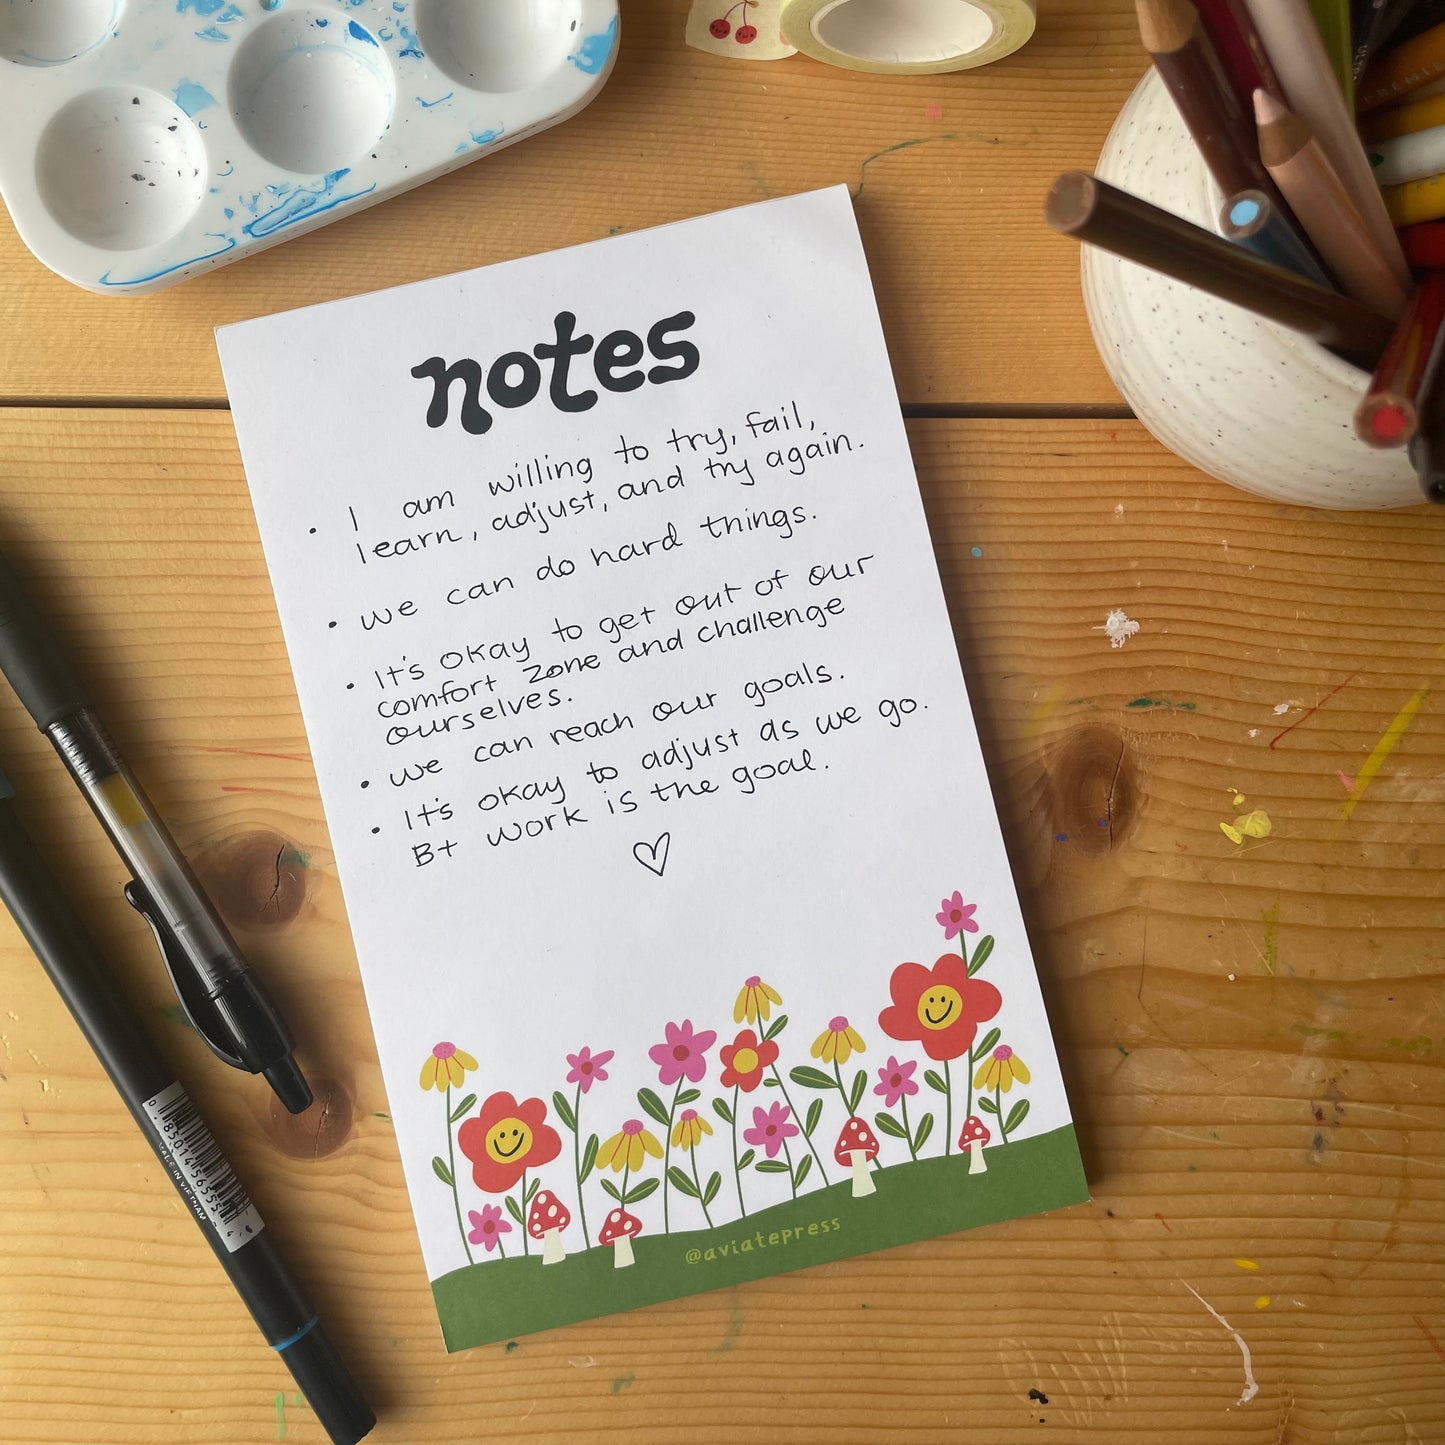 notes
• I am willing to try, fail,
learn, adjust, and try again.
• we can do hard things.
• It's okay to get out of our
comfort zone and challenge
ourselves.
• we can reach our goals.
• It's okay to adjust as we go.
B+ work is the goal.
@aviatepress
MADE IN VIETNAM